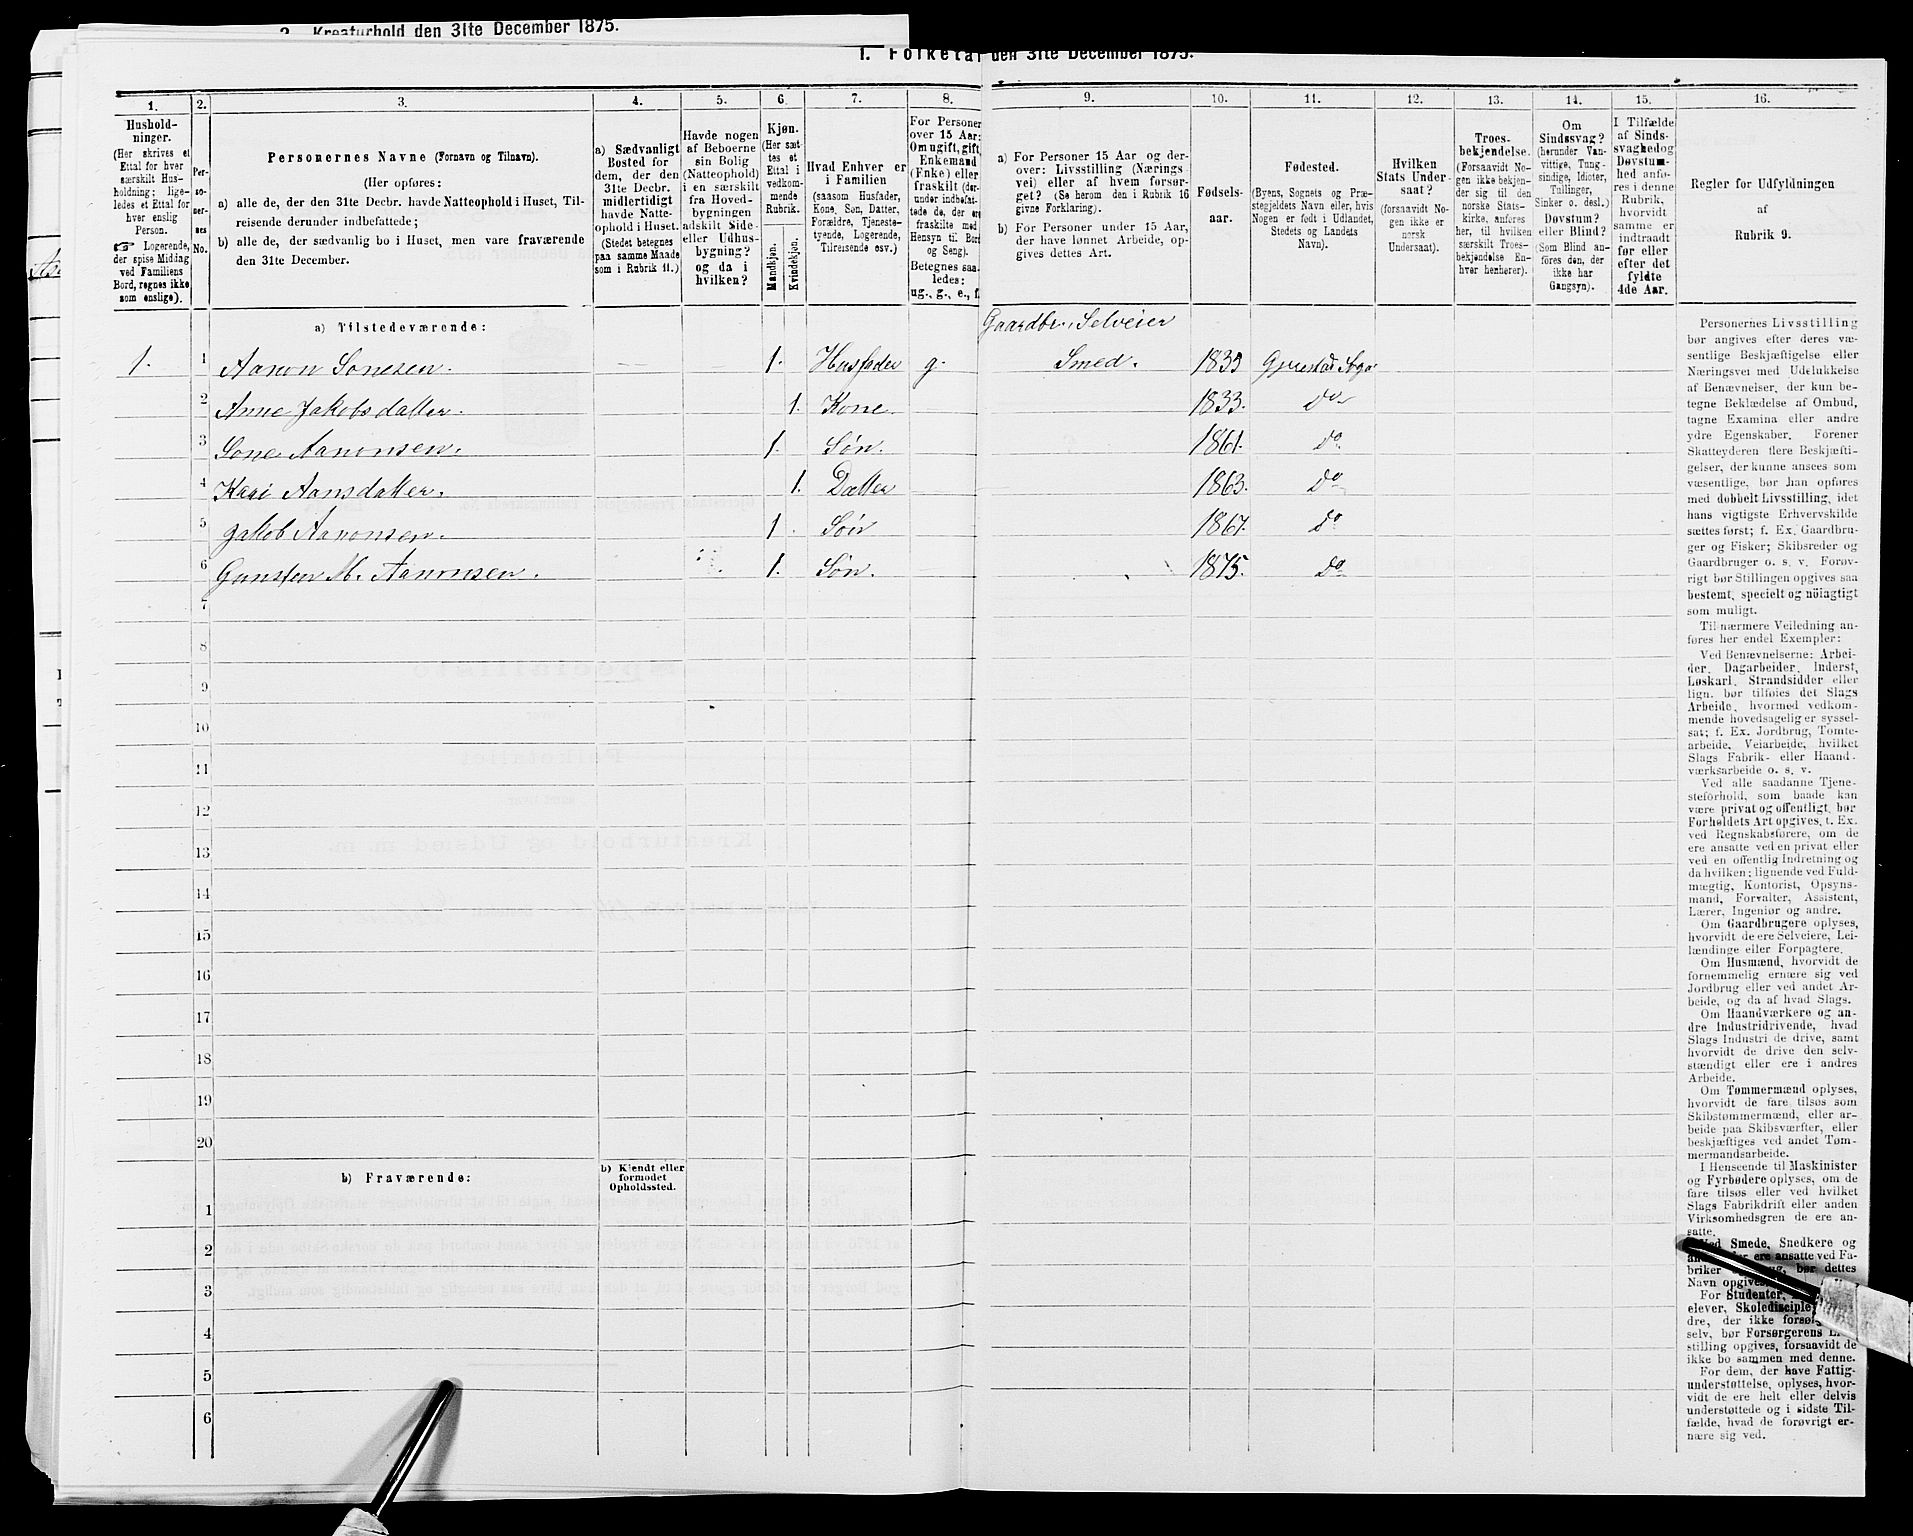 2. Kreaturhold den 31te December 1875.
1. Folketal den 31te December 1875.
1. 2. 3. 4. 5. 6. 7. 8. 9. 10. 11. 12. 13. 14. 15. 16.
Hushold-
ninger.
(Her skrives et
Ettal for hver
særskilt Hus-
holdning; lige-
ledes et Ettal for
hver enslig
Person.
☞ Logerende,
der spise Middag
ved Familiens
Bord, regnes ikke
som enslige).
Per-
so-
ner-
nes
No.
Personernes Navne (Fornavn og Tilnavn).
(Her opføres:
a) alle de, der den 31te Decbr. havde Natteophold i Huset, Til-
reisende derunder indbefattede;
b) alle de, der sædvanlig bo i Huset, men vare fraværende
den 31te December.
a) Sædvanligt
Bosted for
dem, der den
31te Decbr.
midlertidigt
havde Natte-
ophold i Huset.
(Stedet betegnes
paa samme Maade
som i Rubrik 11.)
Havde nogen
af Beboerne
sin Bolig
(Natteophold)
i en særskilt
fra Hoved-
bygningen
adskilt Side-
eller Udhus-
bygning?
og da i
hvilken?
Kjøn.
(Her sæt-
tes et
Ettal i
vedkom-
mende
Rubrik.
Mandkjøn.
Kvindekjøn.
Hvad Enhver er
i Familien
(saasom Husfader,
Kone, Søn, Datter,
Forældre, Tjeneste-
tyende, Logerende,
Tilreisende osv.)
For Personer
over 15 Aar:
Om ugift, gift,
Enkemand
(Enke) eller
fraskilt (der-
under indbefat-
tede de, der ere
fraskilte med
Hensyn til Bord
og Seng).
Betegnes saa-
ledes:
ug., g., e., f.
a) For Personer 15 Aar og der-
over: Livsstilling (Nærings-
vei) eller af hvem forsør-
get? (Se herom den i Rubrik 16
givne Forklaring).
b) For Personer under 15 Aar,
der have lønnet Arbeide, op-
gives dettes Art.
Fødsels-
aar.
Fødested.
(Byens, Sognets og Præ-
stegjeldets Navn eller, hvis
Nogen er født i Udlandet,
Stedets og Landets
Navn).
Hvilken
Stats Under-
saat?
(forsaavidt No-
gen ikke er
norsk
Undersaat).
Troes-
bekjendelse.
(Forsaavidt No-
gen ikke bekjen-
der sig til den
norske Stats-
kirke, anføres
her, til hvilken
særskilt Troes-
bekjendelse En-
hver henhører).
Om
Sindssvag?
(herunder Van-
vittige, Tung-
sindige, Idioter,
Tullinger,
Sinker o. desl.)
Døvstum?
eller Blind?
(Som Blind an-
føres den, der
ikke har
Gangsyn).
I Tilfælde
af Sinds-
svaghed og
Døvstum-
hed anfø-
res i denne
Rubrik,
hvorvidt
samme er
indtraadt
før eller
efter det
fyldte
4de Aar.
Regler for Udfyldningen
af
Rubrik 9.
a) Tilstedeværende:
Gaardbr. Selveier
1. 1 Aanon Sonesen. 1. Husfader g. Smed. Gjerestad Sogn
2 Anne Jakobsdatter. 1. Kone. 1833. Do
3 Sone Aanonsen. 1. Søn. 1861. Do
4 Kari Aansdatter. 1. Datter 1863. Do
5 Jakob Aanonsen. 1. Søn 1867. Do
6 Gunsten M. Aanonsen. 1. Søn. 1875. Do
7
8
9
10
11
12
13
14
15
16
17
18
19
20
b) Fraværende:
b) Kjendt eller
formodet
Opholdssted.
1
2
3
4
5
6
Personernes Livsstilling
bør angives efter deres væ-
sentlige Beskjæftigelse eller
Næringsvei med Udelukkelse
af Benævnelser, der kun be-
tegne Beklædelse af Ombud,
tagne Examina eller andre
ydre Egenskaber. Forener
Skatteyderen flere Beskjæfti-
gelser, der kunne ansees som
væsentlige, bør han opføres
med dobbelt Livsstilling, idet
hans vigtigste Erhvervskilde
sættes først; f. Ex. Gaardbru-
ger og Fisker; Skibsreder og
Gaardbruger o. s. v. Forøv-
rigt bør Stillingen opgives saa
bestemt, specielt og nöiagtigt
som muligt.
Til nærmere Veiledning an-
føres her endel Exempler:
Ved Benævnelserne: Arbei-
der, Dagarbeider, Inderst,
Løskarl, Strandsidder eller
lign. bør tilføies det Slags
Arbeide, hvormed vedkom-
mende hovedsagelig er syssel-
sat; f. Ex. Jordbrug, Tomte-
arbeide, Veiarbeide, hvilket
Slags Fabrik- eller Haand-
værksarbeide o. s. v.
Ved alle saadanne Tjene-
steforhold, som baade kan
være privat og offentligt, bør
Forholdets Art opgives, t. Ex.
ved Regnskabsførere, om de
ere ansatte ved en privat eller
ved en offentlig Indretning og
da hvilken; lignende ved Fuld-
mægtig, Kontorist, Opsyns-
mand, Forvalter, Assistent,
Lærer, Ingeniør og andre.
Om Gaardbrugere oplyses,
hvorvidt de ere Selveiere, Lei-
lændinge eller Forpagtere.
Om Husmænd, hvorvidt de
fornemmelig ernære sig ved
Jordbrug eller ved andet Ar-
beide, og da af hvad Slags.
Om Haandværkere og an-
dre Industridrivende, hvad
Slags Industri de drive, samt
hvorvidt de drive den selv-
stændigt eller ere i andres
Arbeide.
Om Tømmermænd oplyses,
hvorvidt de fare tilsøs som
Skibstømmermænd, eller ar-
beide paa Skibsværfter, eller
beskjæftiges ved andet Tøm-
mermandsarbeide.
I Henseende til Maskinister
og Fyrbødere oplyses, om de
fare tilsøs eller ved hvilket
Slags Fabrikdrift eller anden
Virksomhedsgren de ere an-
satte.
Ved Smede, Snedkere og
ere ansatte ved Fa-
briker bør dettes
Navn opgives.
For Studenter,
elever, Skoledisciple
dre, der ikke
selv, bør Forsørgerens
stilling opgives, forsaavidt de
ikke bo sammen med denne.
For dem, der have Fattig-
understøttelse, oplyses, hvor-
vidt de ere helt eller delvis
understøttede og i sidste Til-
fælde, hvad de forøvrigt er-
nære sig ved.